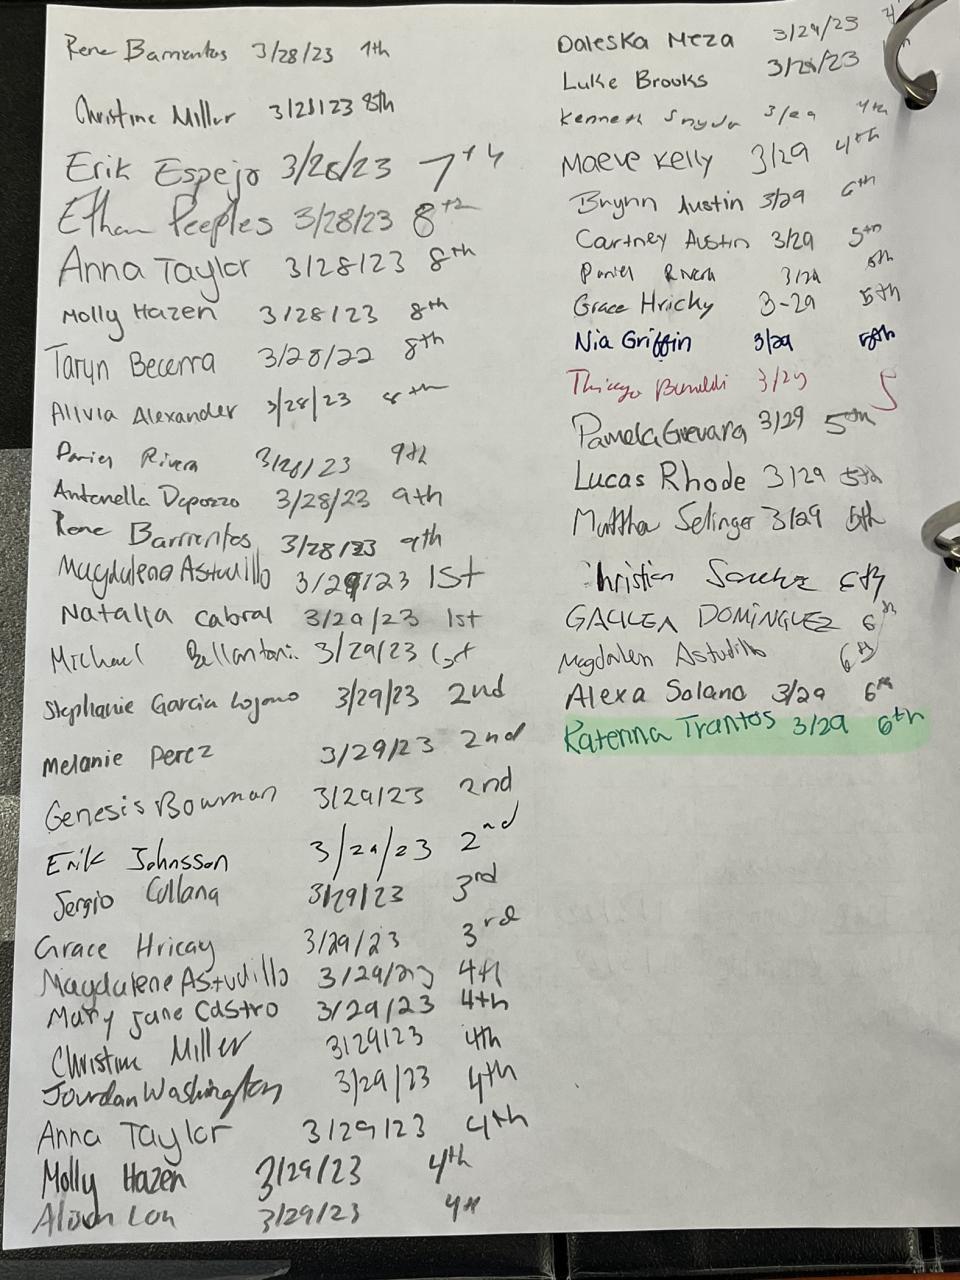 Rene Barrientos 3/28/23 7th
Christine Miller 3/28/23 8th
Erik Espejo 3/28/23 7th
Ethan Peeples 3/28/23 8th
Anna Taylor 3/28/23 8th
Molly Hazen 3/28/23 8th
Taryn Becerra 3/28/22 8th
Alivia Alexander 3/28/23 8th
Daniel Rivera 3/28/23 9th
Antonella Daporzo 3/28/23 9th
Rene Barrientos 3/28/23 9th
Magdalena Astudillo 3/29/23 1st
Natalia Cabral 3/29/23 1st
Michael Bellantoni 3/29/23 1st
Stephanie Garcia Lozano 3/29/23 2nd
Melanie Perez 3/29/23 2nd
Genesis Bowman 3/29/23 2nd
Erik Johnsson 3/29/23 2nd
Sergio Collana 3/29/23 3rd
Grace Hricay 3/29/23 3rd
Magdalene Astudillo 3/29/23 4th
Mary Jane Castro 3/29/23 4th
Christine Miller 3/29/23 4th
Jourdan Washington 3/29/23 4th
Anna Taylor 3/29/23 4th
Molly Hazen 3/29/23 4th
Alison 3/29/23 4th
Daleska Meza 3/29/23
Luke Brooks 3/29/23
Kenneth Snyder 3/29 4th
Maeve Kelly 3/29 4th
Brynn Austin 3/29 6th
Cartney Austin 3/29 5th
Daniel Rivera 3/29 5th
Grace Hricky 3-29 5th
Nia Griffin 3/29 5th
Thiago 3/29 5
Pamela Guevara 3/29 5th
Lucas Rhode 3/29 5th
Matthew Selinger 3/29 5th
Christian Sanchez 6th
GALILEA DOMINGUEZ 6th
Magdalen Astudillo 6th
Alexa Solano 3/29 6th
Katerina Trantos 3/29 6th